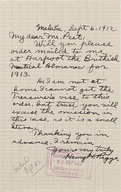 Melita, Sept 6, 1912
My dear Mr. Peet,
Will you please
order mailed to me
at Harpoot the British
Nautical Almanac for
1913.
As I am not at
home I cannot get the
Treasurer's visé to this
order, but trust you will
excuse the omission in
this case, as it is a small
item.
Thanking you in
advance, I remain
Yours very truly
Henry H. Riggs